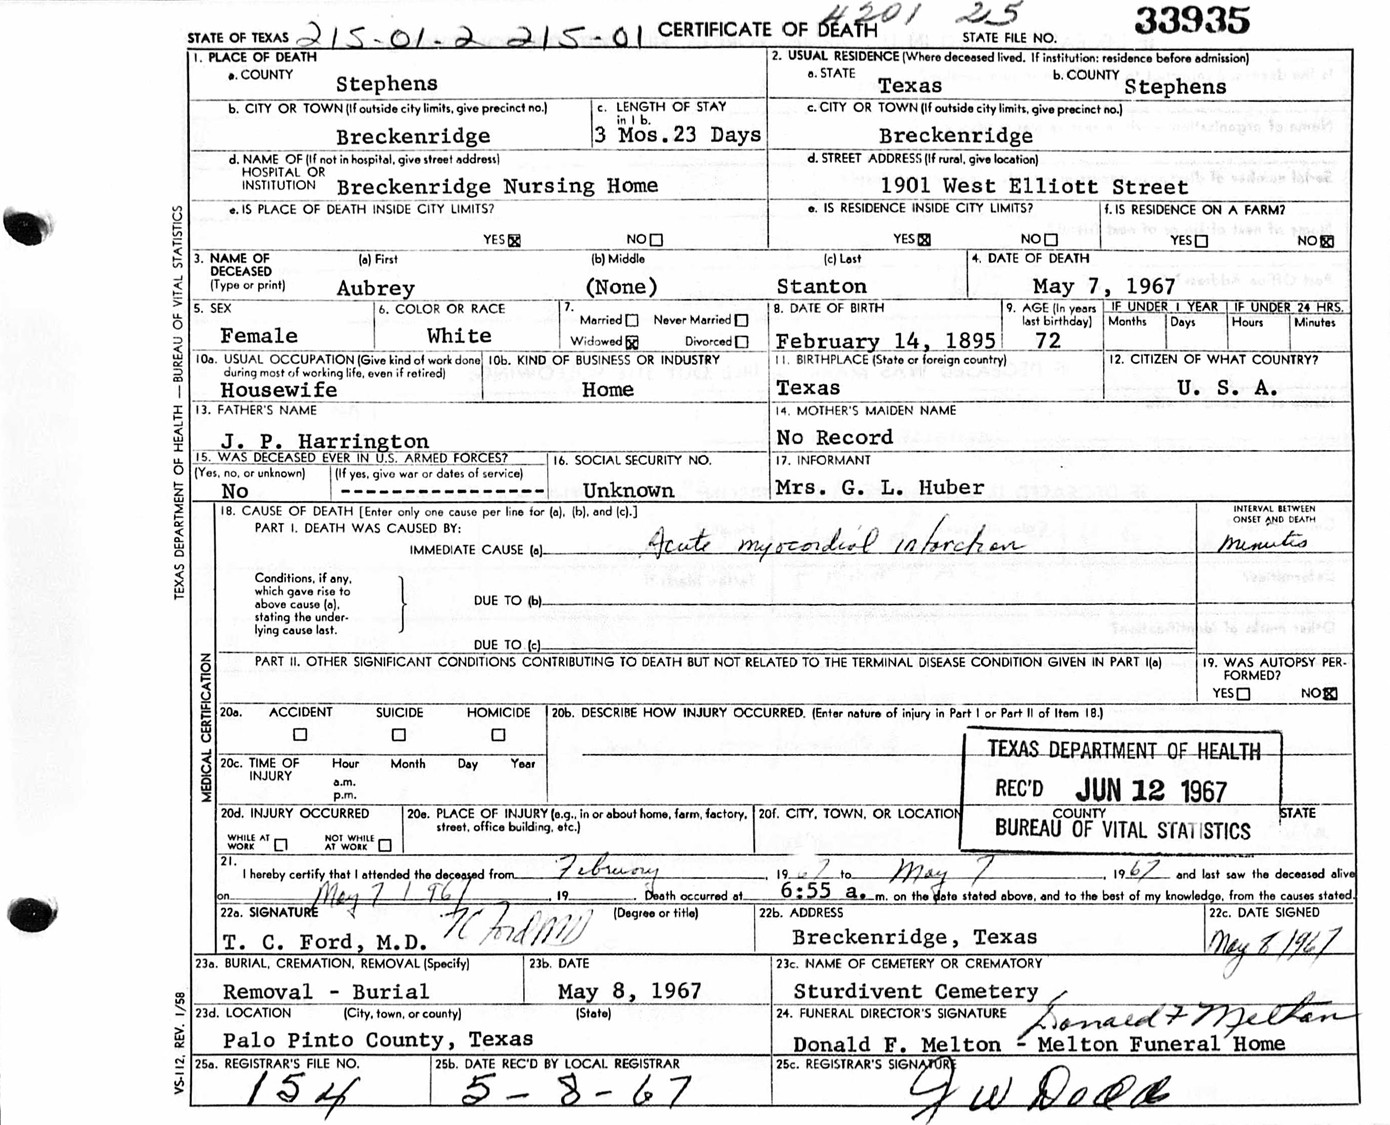 STATE OF TEXAS 215-01-2 215-01 CERTIFICATE OF DEATH 4201 215 STATE FILE NO. 33935
1. PLACE OF DEATH
a. COUNTY
Stephens
2. USUAL RESIDENCE (Where deceased lived. If institution: residence before admission)
a. STATE b. COUNTY
Texas Stephens
b. CITY OR TOWN (If outside city limits, give precinct no.)
Breckenridge
c. LENGTH OF STAY
in 1 b.
3 Mos. 23 Days
c. CITY OR TOWN (If outside city limits, give precinct no.)
Breckenridge
d. NAME OF (If not in hospital, give street address)
HOSPITAL OR
INSTITUTION Breckenridge Nursing Home
d. STREET ADDRESS (If rural, give location)
1901 West Elliott Street
e. IS PLACE OF DEATH INSIDE CITY LIMITS?
YES☒ NO☐
e. IS RESIDENCE INSIDE CITY LIMITS?
YES☒ NO☐
f. IS RESIDENCE ON A FARM?
YES☐ NO☒
3. NAME OF
DECEASED
(Type or print)
(a) First (b) Middle (c) Last
Aubrey (None) Stanton
4. DATE OF DEATH
May 7, 1967
5. SEX
Female
6. COLOR OR RACE
White
7.
Married☐ Never Married☐
Widowed☒ Divorced☐
8. DATE OF BIRTH
February 14, 1895
9. AGE (In years
last birthday)
72
IF UNDER 1 YEAR IF UNDER 24 HRS.
Months Days Hours Minutes
10a. USUAL OCCUPATION (Give kind of work done
during most of working life, even if retired)
Housewife
10b. KIND OF BUSINESS OR INDUSTRY
Home
11. BIRTHPLACE (State or foreign country)
Texas
12. CITIZEN OF WHAT COUNTRY?
U. S. A.
13. FATHER'S NAME
J. P. Harrington
14. MOTHER'S MAIDEN NAME
No Record
15. WAS DECEASED EVER IN U.S. ARMED FORCES?
(Yes, no, or unknown) (If yes, give war or dates of service)
No ------------------
16. SOCIAL SECURITY NO.
Unknown
17. INFORMANT
Mrs. G. L. Huber
18. CAUSE OF DEATH [Enter only one cause per line for (a), (b), and (c).]
PART I. DEATH WAS CAUSED BY:
IMMEDIATE CAUSE (a) Acute myocardial infarction
INTERVAL BETWEEN
ONSET AND DEATH
Minutes
Conditions, if any,
which gave rise to
above cause (a),
stating the under-
lying cause last.
DUE TO (b)
DUE TO (c)
PART II. OTHER SIGNIFICANT CONDITIONS CONTRIBUTING TO DEATH BUT NOT RELATED TO THE TERMINAL DISEASE CONDITION GIVEN IN PART I(a)
19. WAS AUTOPSY PER-
FORMED?
YES☐ NO☒
20a. ACCIDENT SUICIDE HOMICIDE
☐ ☐ ☐
20b. DESCRIBE HOW INJURY OCCURRED. (Enter nature of injury in Part I or Part II of Item 18.)
20c. TIME OF
INJURY
Hour Month Day Year
a.m.
p.m.
TEXAS DEPARTMENT OF HEALTH
REC'D JUN 12 1967
BUREAU OF VITAL STATISTICS
20d. INJURY OCCURRED
WHILE AT
WORK ☐
NOT WHILE
AT WORK ☐
20e. PLACE OF INJURY (e.g., in or about home, farm, factory,
street, office building, etc.)
20f. CITY, TOWN, OR LOCATION COUNTY STATE
21.
I hereby certify that I attended the deceased from February, 1967 to May 7, 1967 and last saw the deceased alive
on May 7 1967, 19 . Death occurred at 6:55 a. m. on the date stated above, and to the best of my knowledge, from the causes stated.
22a. SIGNATURE (Degree or title)
T. C. Ford, M.D. TC Ford MD
22b. ADDRESS
Breckenridge, Texas
22c. DATE SIGNED
May 8 1967
23a. BURIAL, CREMATION, REMOVAL (Specify)
Removal - Burial
23b. DATE
May 8, 1967
23c. NAME OF CEMETERY OR CREMATORY
Sturdivent Cemetery
23d. LOCATION (City, town, or county) (State)
Palo Pinto County, Texas
24. FUNERAL DIRECTOR'S SIGNATURE Donald F Melton
Donald F. Melton - Melton Funeral Home
25a. REGISTRAR'S FILE NO.
154
25b. DATE REC'D BY LOCAL REGISTRAR
5-8-67
25c. REGISTRAR'S SIGNATURE
TEXAS DEPARTMENT OF HEALTH — BUREAU OF VITAL STATISTICS
MEDICAL CERTIFICATION
VS-112, REV. 1/58